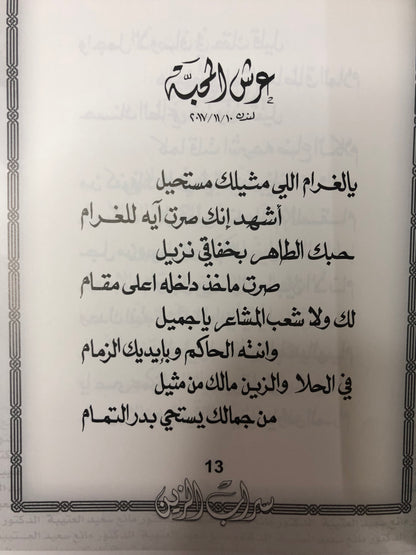 عرش المحبّة
لندن ٢٠١٧/١١/١٠
يالغرام اللي مثيلك مستحيل
أشهد إنك صرت آيه للغرام
حبك الطاهر بخفاقي نزيل
صرت ماخذ داخله اعلى مقام
لك ولا شعب المشاعر ياجميل
وانته الحاكم وبإيديك الزمام
في الحلا والزين مالك من مثيل
من جمالك يستحي بدر التمام
13
سراب الزين